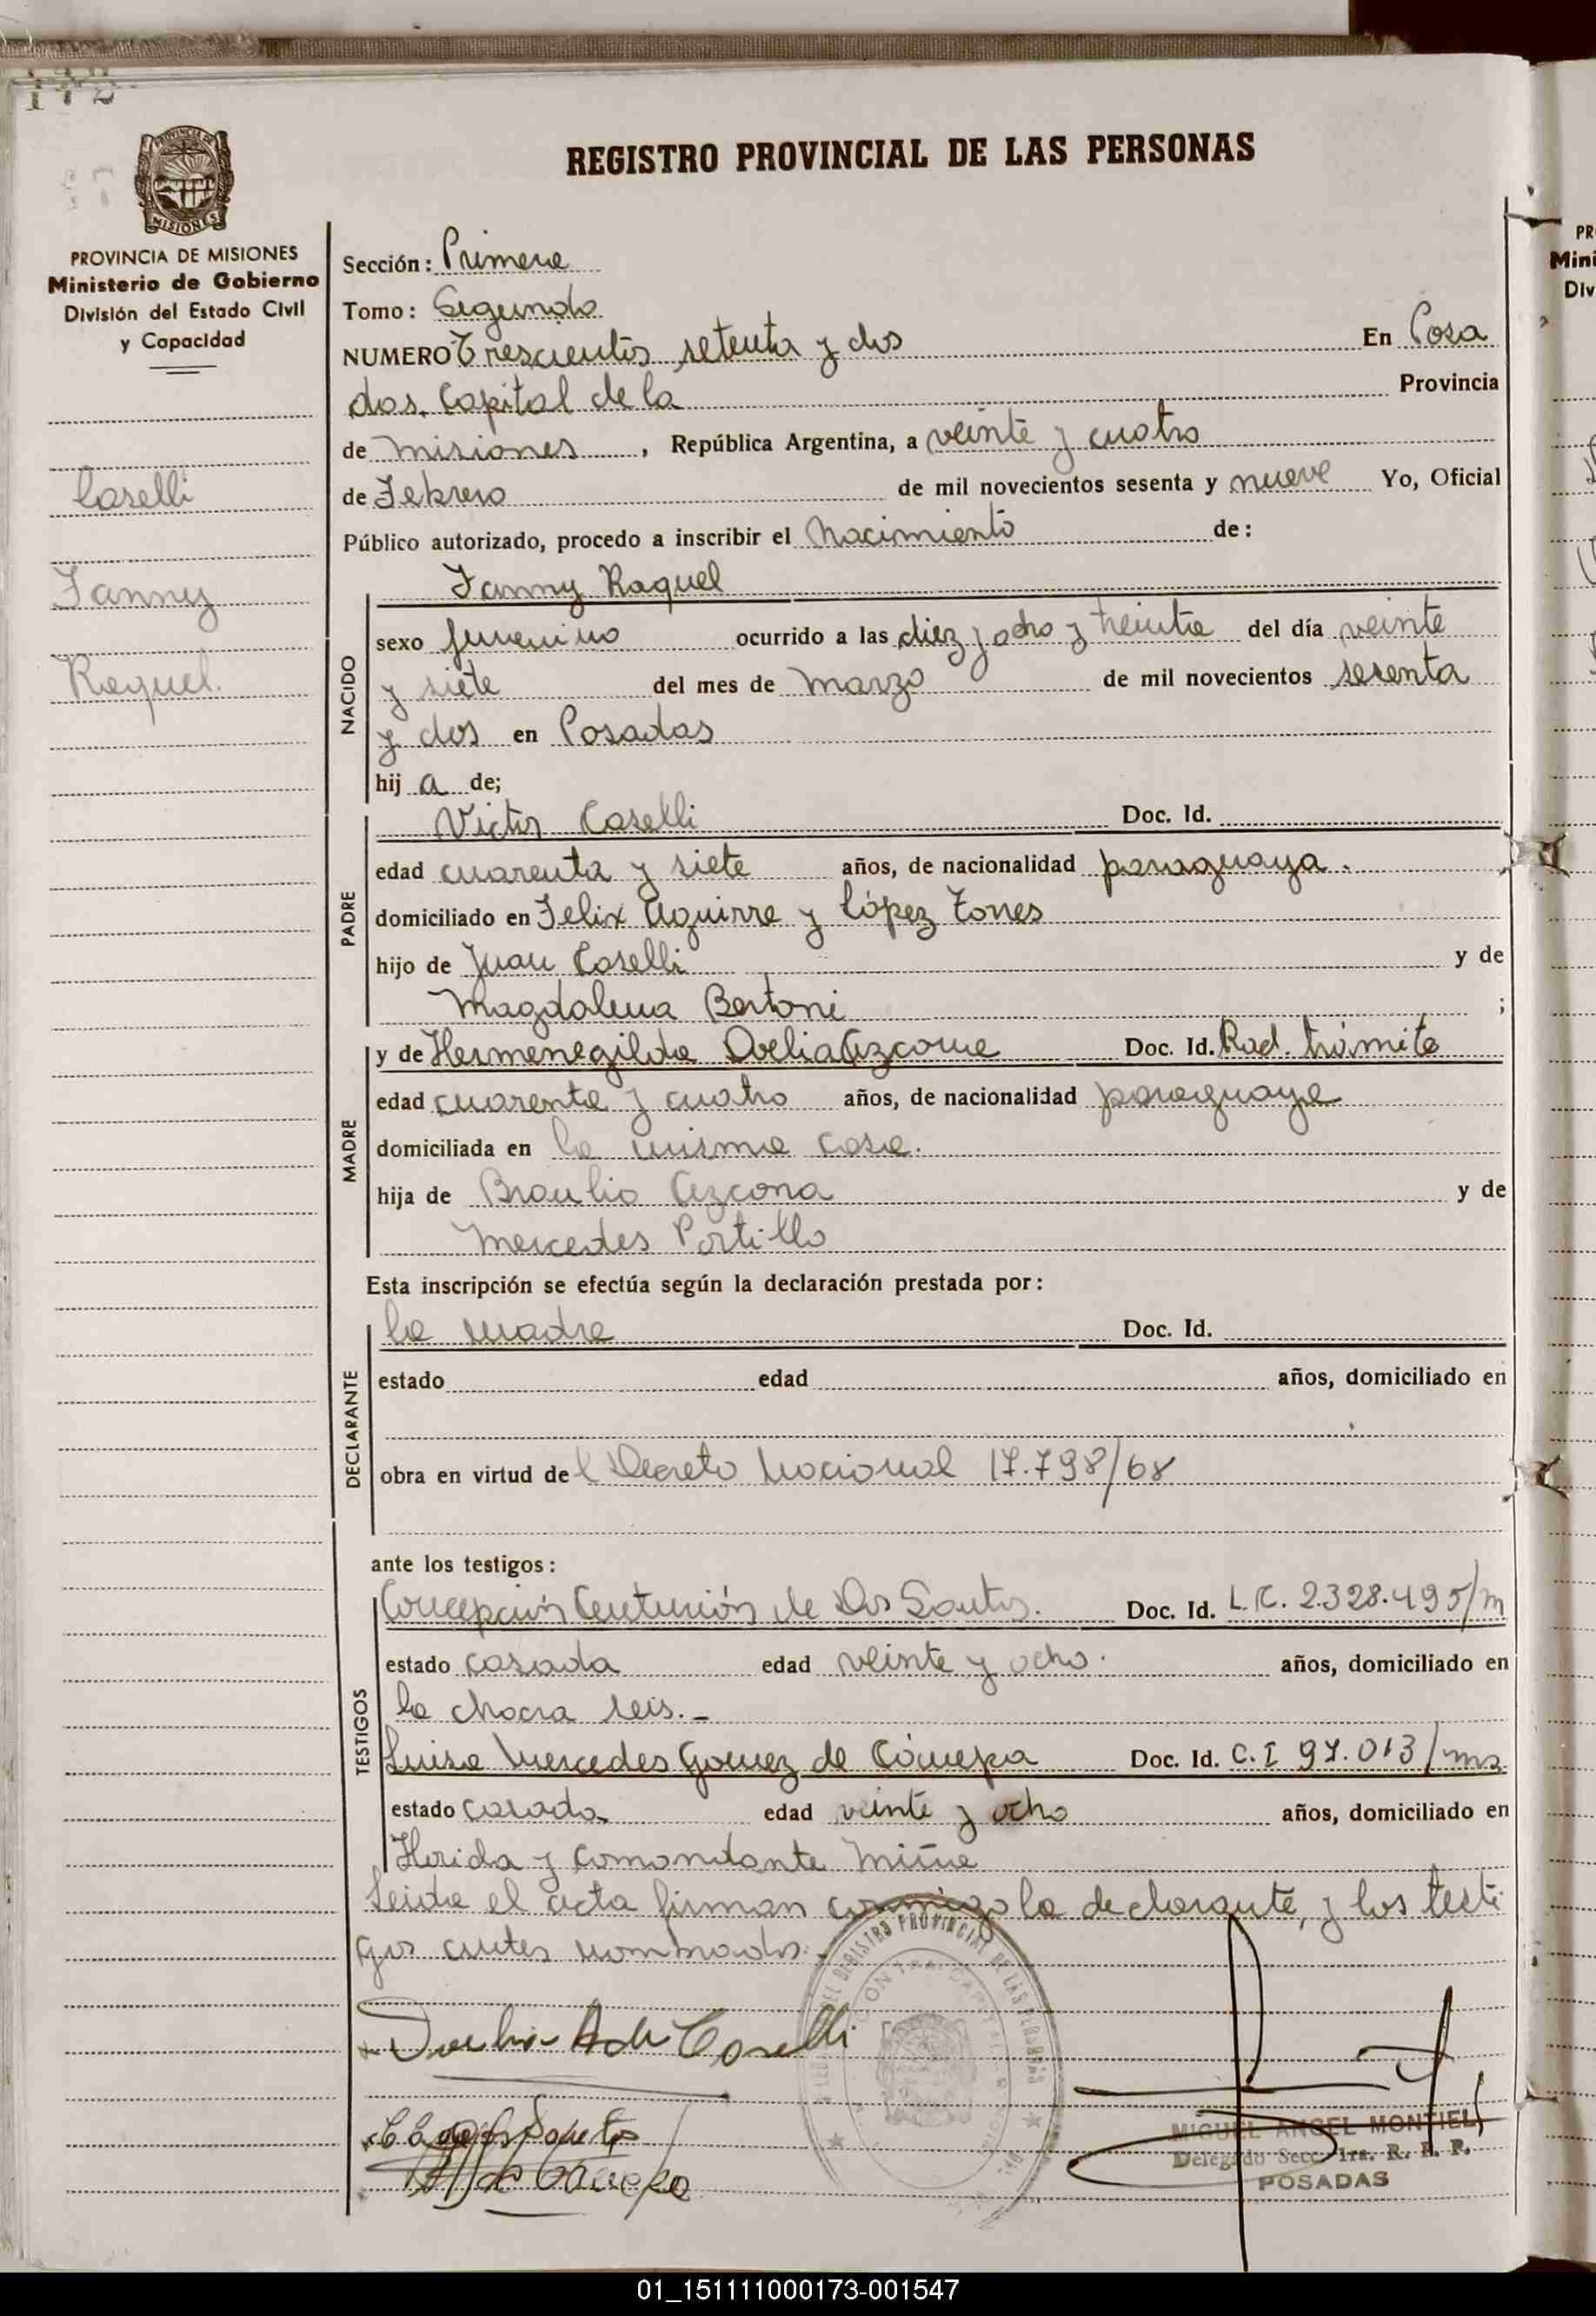 REGISTRO PROVINCIAL DE LAS PERSONAS
PROVINCIA DE
MISIONES
PROVINCIA DE MISIONES
Ministerio de Gobierno
División del Estado Civil
y Capacidad
Caselli
Fanny
Raquel.
Sección: Primera
Tomo: Segundo
NUMERO Trescientos setenta y dos En Posa
dos. Capital de la Provincia
de Misiones, República Argentina, a veinte y cuatro
de Febrero de mil novecientos sesenta y nueve Yo, Oficial
Público autorizado, procedo a inscribir el Nacimiento de:
Fanny Raquel
NACIDO
sexo femenino ocurrido a las diez y ocho y treinta del día veinte
y siete del mes de marzo de mil novecientos sesenta
y dos en Posadas
hij a de;
PADRE
Victor Caselli Doc. Id.
edad cuarenta y siete años, de nacionalidad paraguaya.
domiciliado en Felix Aguirre y López Torres
hijo de Juan Caselli y de
Magdalena Bertoni ;
MADRE
y de Hermenegilda Doelia Azcone Doc. Id. Rad. trámite
edad cuarenta y cuatro años, de nacionalidad paraguaya
domiciliada en la misma casa.
hija de Braulio Azcona y de
Mercedes Portillo
Esta inscripción se efectúa según la declaración prestada por:
DECLARANTE
la madre Doc. Id.
estado edad años, domiciliado en
obra en virtud del Decreto Nacional 17.798/68
ante los testigos:
TESTIGOS
Concepción Centurión de Dos Santos. Doc. Id. L.C. 2.328.495/m
estado casada edad veinte y ocho. años, domiciliado en
la chacra seis.-
Luisa Mercedes Gomez de Doc. Id. C.I 97.013/ms
estado casada edad veinte y ocho años, domiciliado en
Florida y Comandante Miño
Leida el acta firman conmigo la declarante, y los testi
gos antes nombrados.-
Caselli
DEL REGISTRO PROVINCIAL DE LAS PERSONAS
MIGUEL ANGEL MONTIEL
Delegado Secc. 1ra. R. P. P.
POSADAS
PR
Mini
Div
01_151111000173-001547